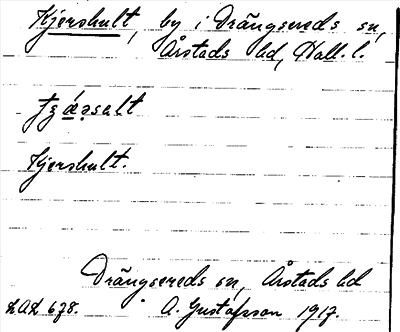 Kjershult, by i Drängsereds sn,
Årstads hd, Hall. l.
Kjershult.
Drängsereds sn, Årstads hd
LAL 678. A. Gustafsson 1917.